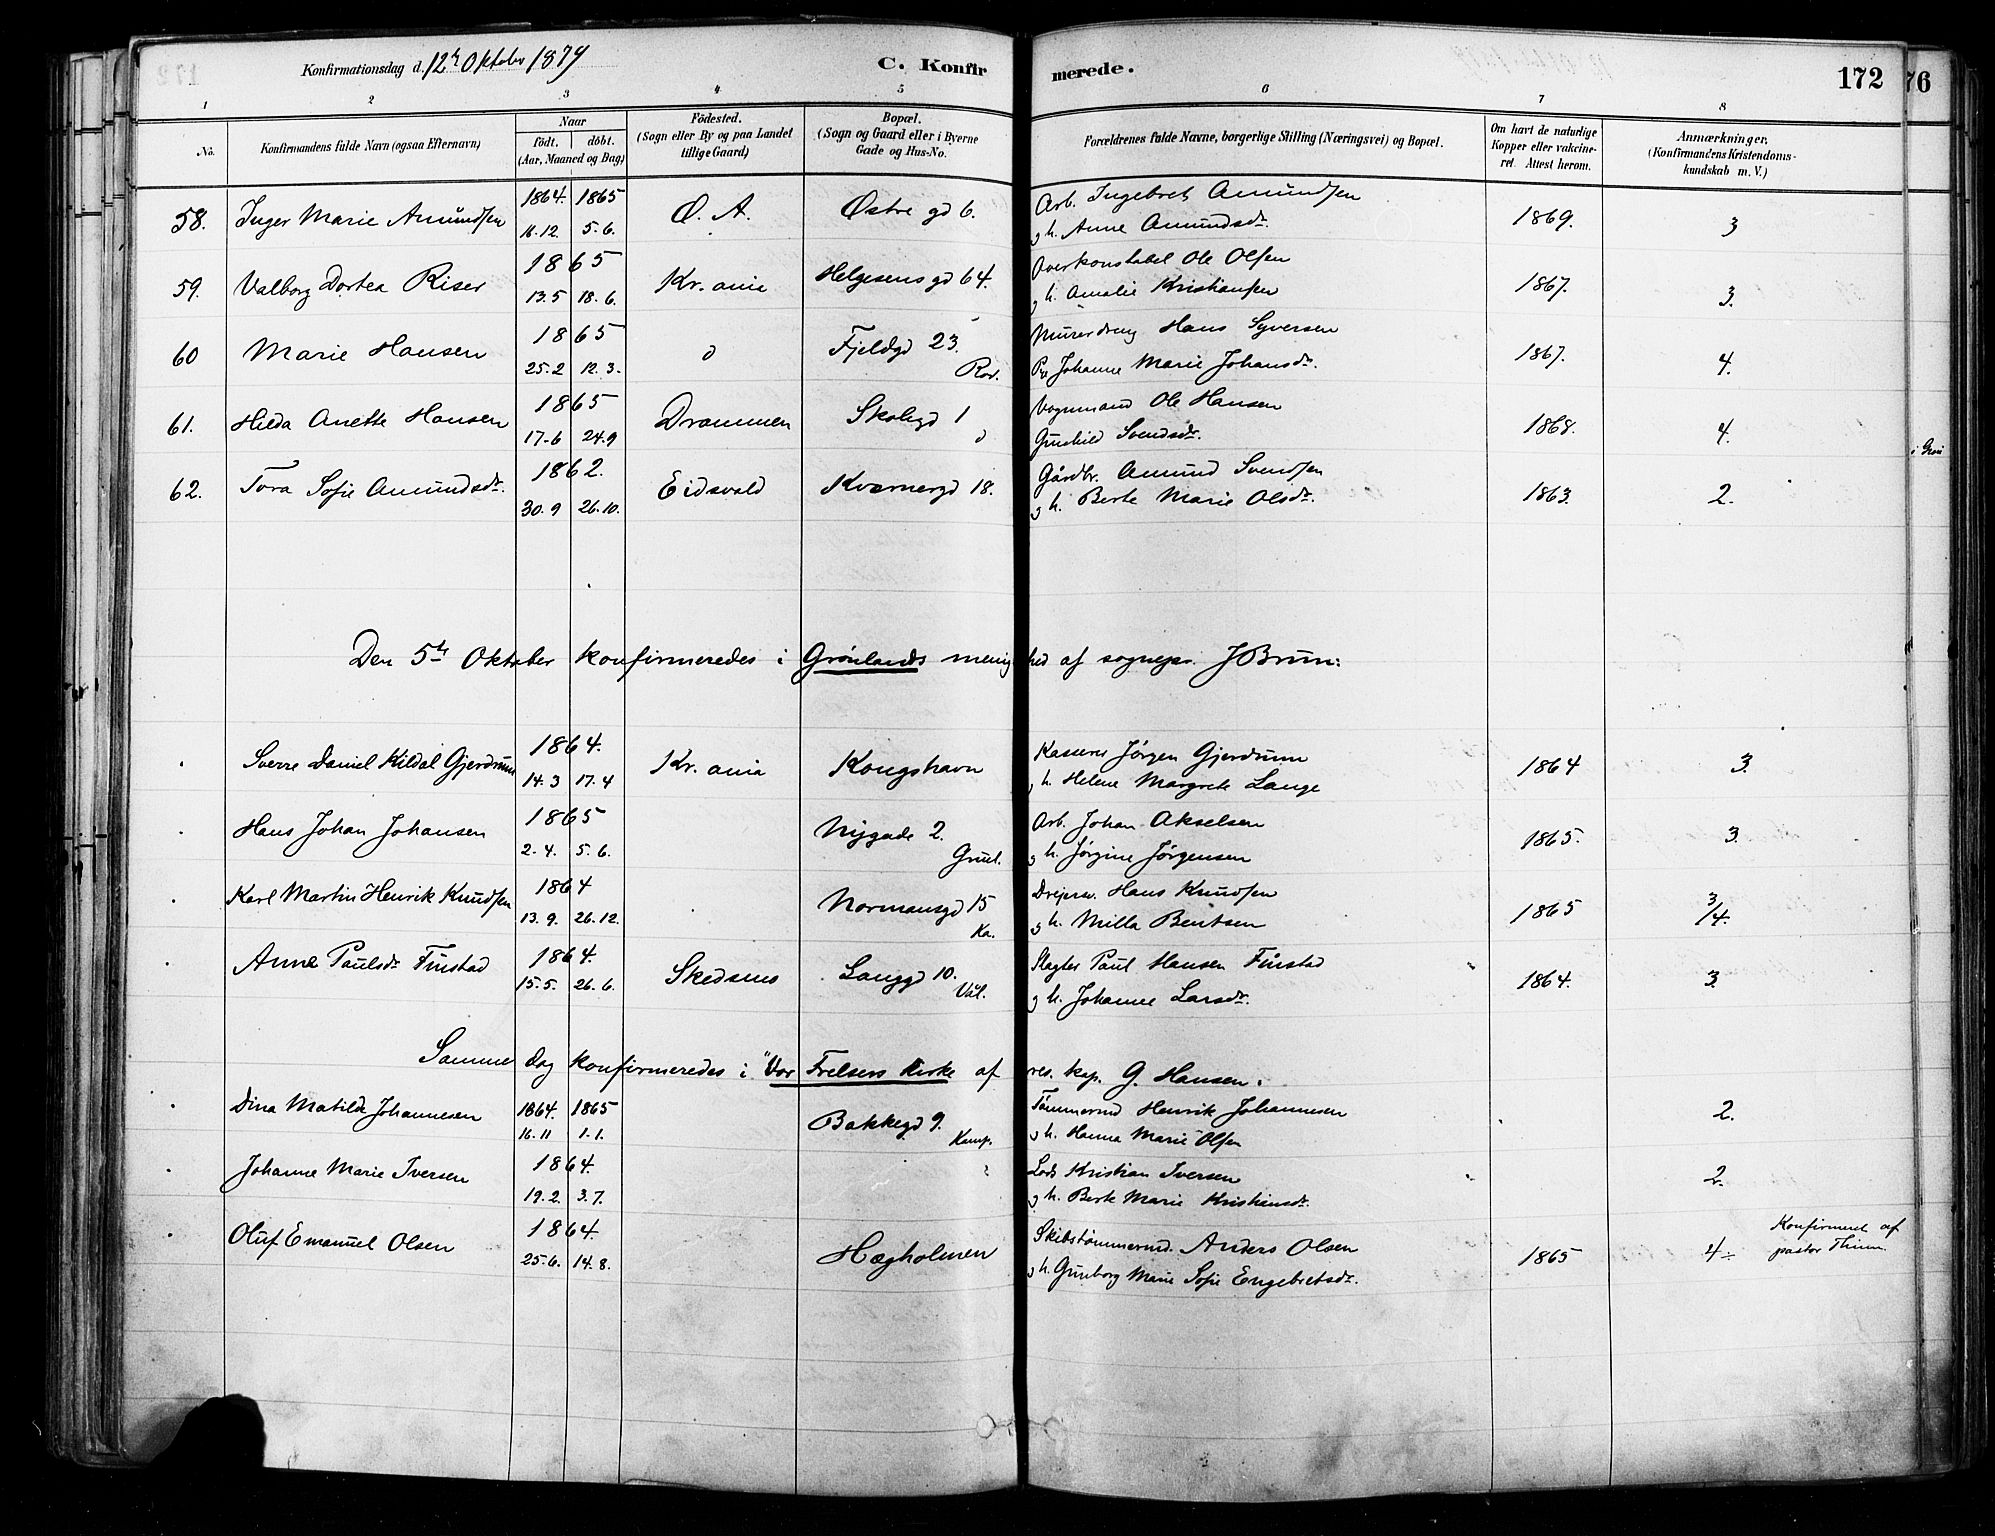 Konfirmationsdag d. 12te Oktober 1879 C. Konfirmerede. 172 76
1 2 3 4 5 6 7 8
No. Konfirmandens fulde Navn (ogsaa Efternavn) Naar födt. döbt. (Aar, Maaned og Dag) Födested. (Sogn eller By og paa Landet tillige Gaard) Bopæl. (Sogn og Gaard eller i Byerne Gade og Hus-No. Forældrenes fulde Navne, borgerlige Stilling (Næringsvei) og Bopæl. Om havt de naturlige Kopper eller vakcineret. Attest herom. Anmærkninger, (Konfirmandens Kristendomskundskab m. V.)
58. Inger Marie Amundsen 1864. 1865 16.12. 5.6. Ø. A. Østre gd 6. Arb. Ingebret Amundsen
g h. Anne Amundsdr. 1869. 3
59. Valborg Dortea Riser 1865 13.5 18.6. Kr.ania Helgesens gd 64. Overkonstabel Ole Olsen
g h. Amalie Kristiansen 1867. 3.
60 Marie Hansen 1865 25.2 12.3. d Fjeldgd 23. Rov. Murerdreng Hans Syversen
Pge Johanne Marie Johansdr. 1867. 4.
61. Hilda Anette Hansen 1865 17.6 24.9 Drammen Skolegd 1 d Vognmand Ole Hansen
Gunhild Svendsdr. 1868. 4.
62. Tora Sofie Amundsdr. 1862. 30.9 26.10. Eidsvold Kværnergd 18. Gårdbr. Amund Svendsen
g h. Berte Marie Olsdr. 1863. 2.
i Grøn
Den 5te Oktober konfirmeredes i Grønlands menighed af sognepr. J Brun:
Sverre Daniel Kildal Gjerdrum 1864. 14.3 17.4 Kr.ania Kongshavn Kasserer Jørgen Gjerdrum
g h. Helene Margrete Lange 1864 3.
Hans Johan Johansen 1865 2.4. 5.6. Nygade 2. Grønl. Arb. Johan Akselsen
g h. Jørgine Jørgensen 1865. 3.
Karl Martin Henrik Knudsen 1864 13.9. 26.12. Normansgd 15 Ka. Drejersv. Hans Knudsen
g h. Milla Bentsen 1865 3/4.
Anne Paulsdr Finstad 1864. 15.5. 26.6. Skedsmo Langgd 10. Vål. Slagter Paul Hansen Finstad
g h. Johanne Larsdr. 1864. 3.
Samme dag konfirmeredes i Vor Frelsers Kirke af res. kap. G. Hansen.
Dina Matilde Johannesen 1864. 1865 16.11 1.1. Bakkegd 9. Kamp. Tømmermd Henrik Johannesen
g h. Hanna Marie Olsen 2.
Johanne Marie Iversen 1864. 19.2. 3.7. Lods Kristian Iversen
g h. Berte Marie Kristiansdr. 2.
Oluf Emanuel Olsen 1864. 25.6. 14.8. Hægholmen Skibstømmermd. Anders Olsen
g h. Gunborg Marie Sofie Engebretsdr. 1865 4- Konfirmeret af
pastor Thinn.